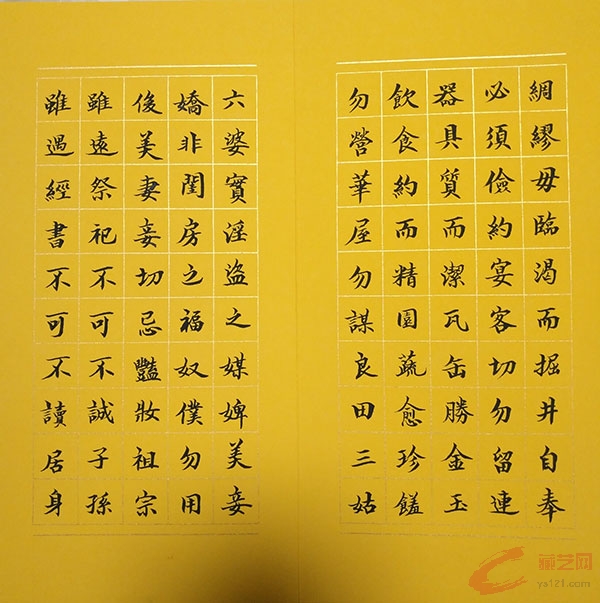 綢繆毋臨渴而掘井自奉
必須儉約宴客切勿留連
器具質而潔瓦缶勝金玉
飲食約而精園蔬愈珍饈
勿營華屋勿謀良田三姑
六婆實淫盜之媒婢美妾
嬌非閨房之福奴僕勿用
俊美妻妾切忌豔妝祖宗
雖遠祭祀不可不誠子孫
雖遇經書不可不讀居身
ys121.com